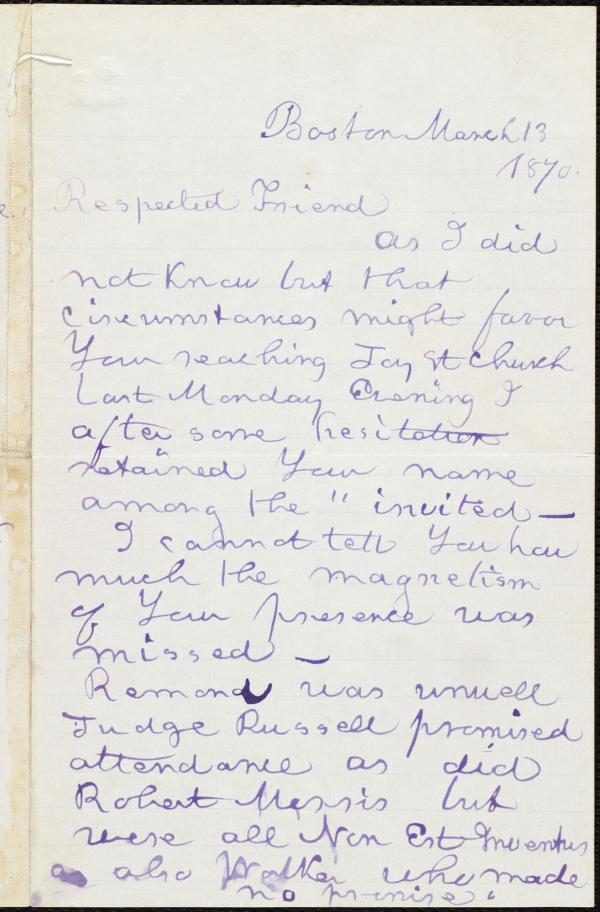 Boston March 13
1870.
Respected Friend
as I did
not Know but that
circumstances might favor
Your reaching Joy St Church
Last Monday Evening I
after some hesitation
retained Your name
among the "invited —
I cannot tell You how
much the magnetism
of Your presence was
missed —
Remond was unwell
Judge Russell promised
attendance as did
Robert Morris but
were all Non Est Inventus
as also Walker who made
no promise.